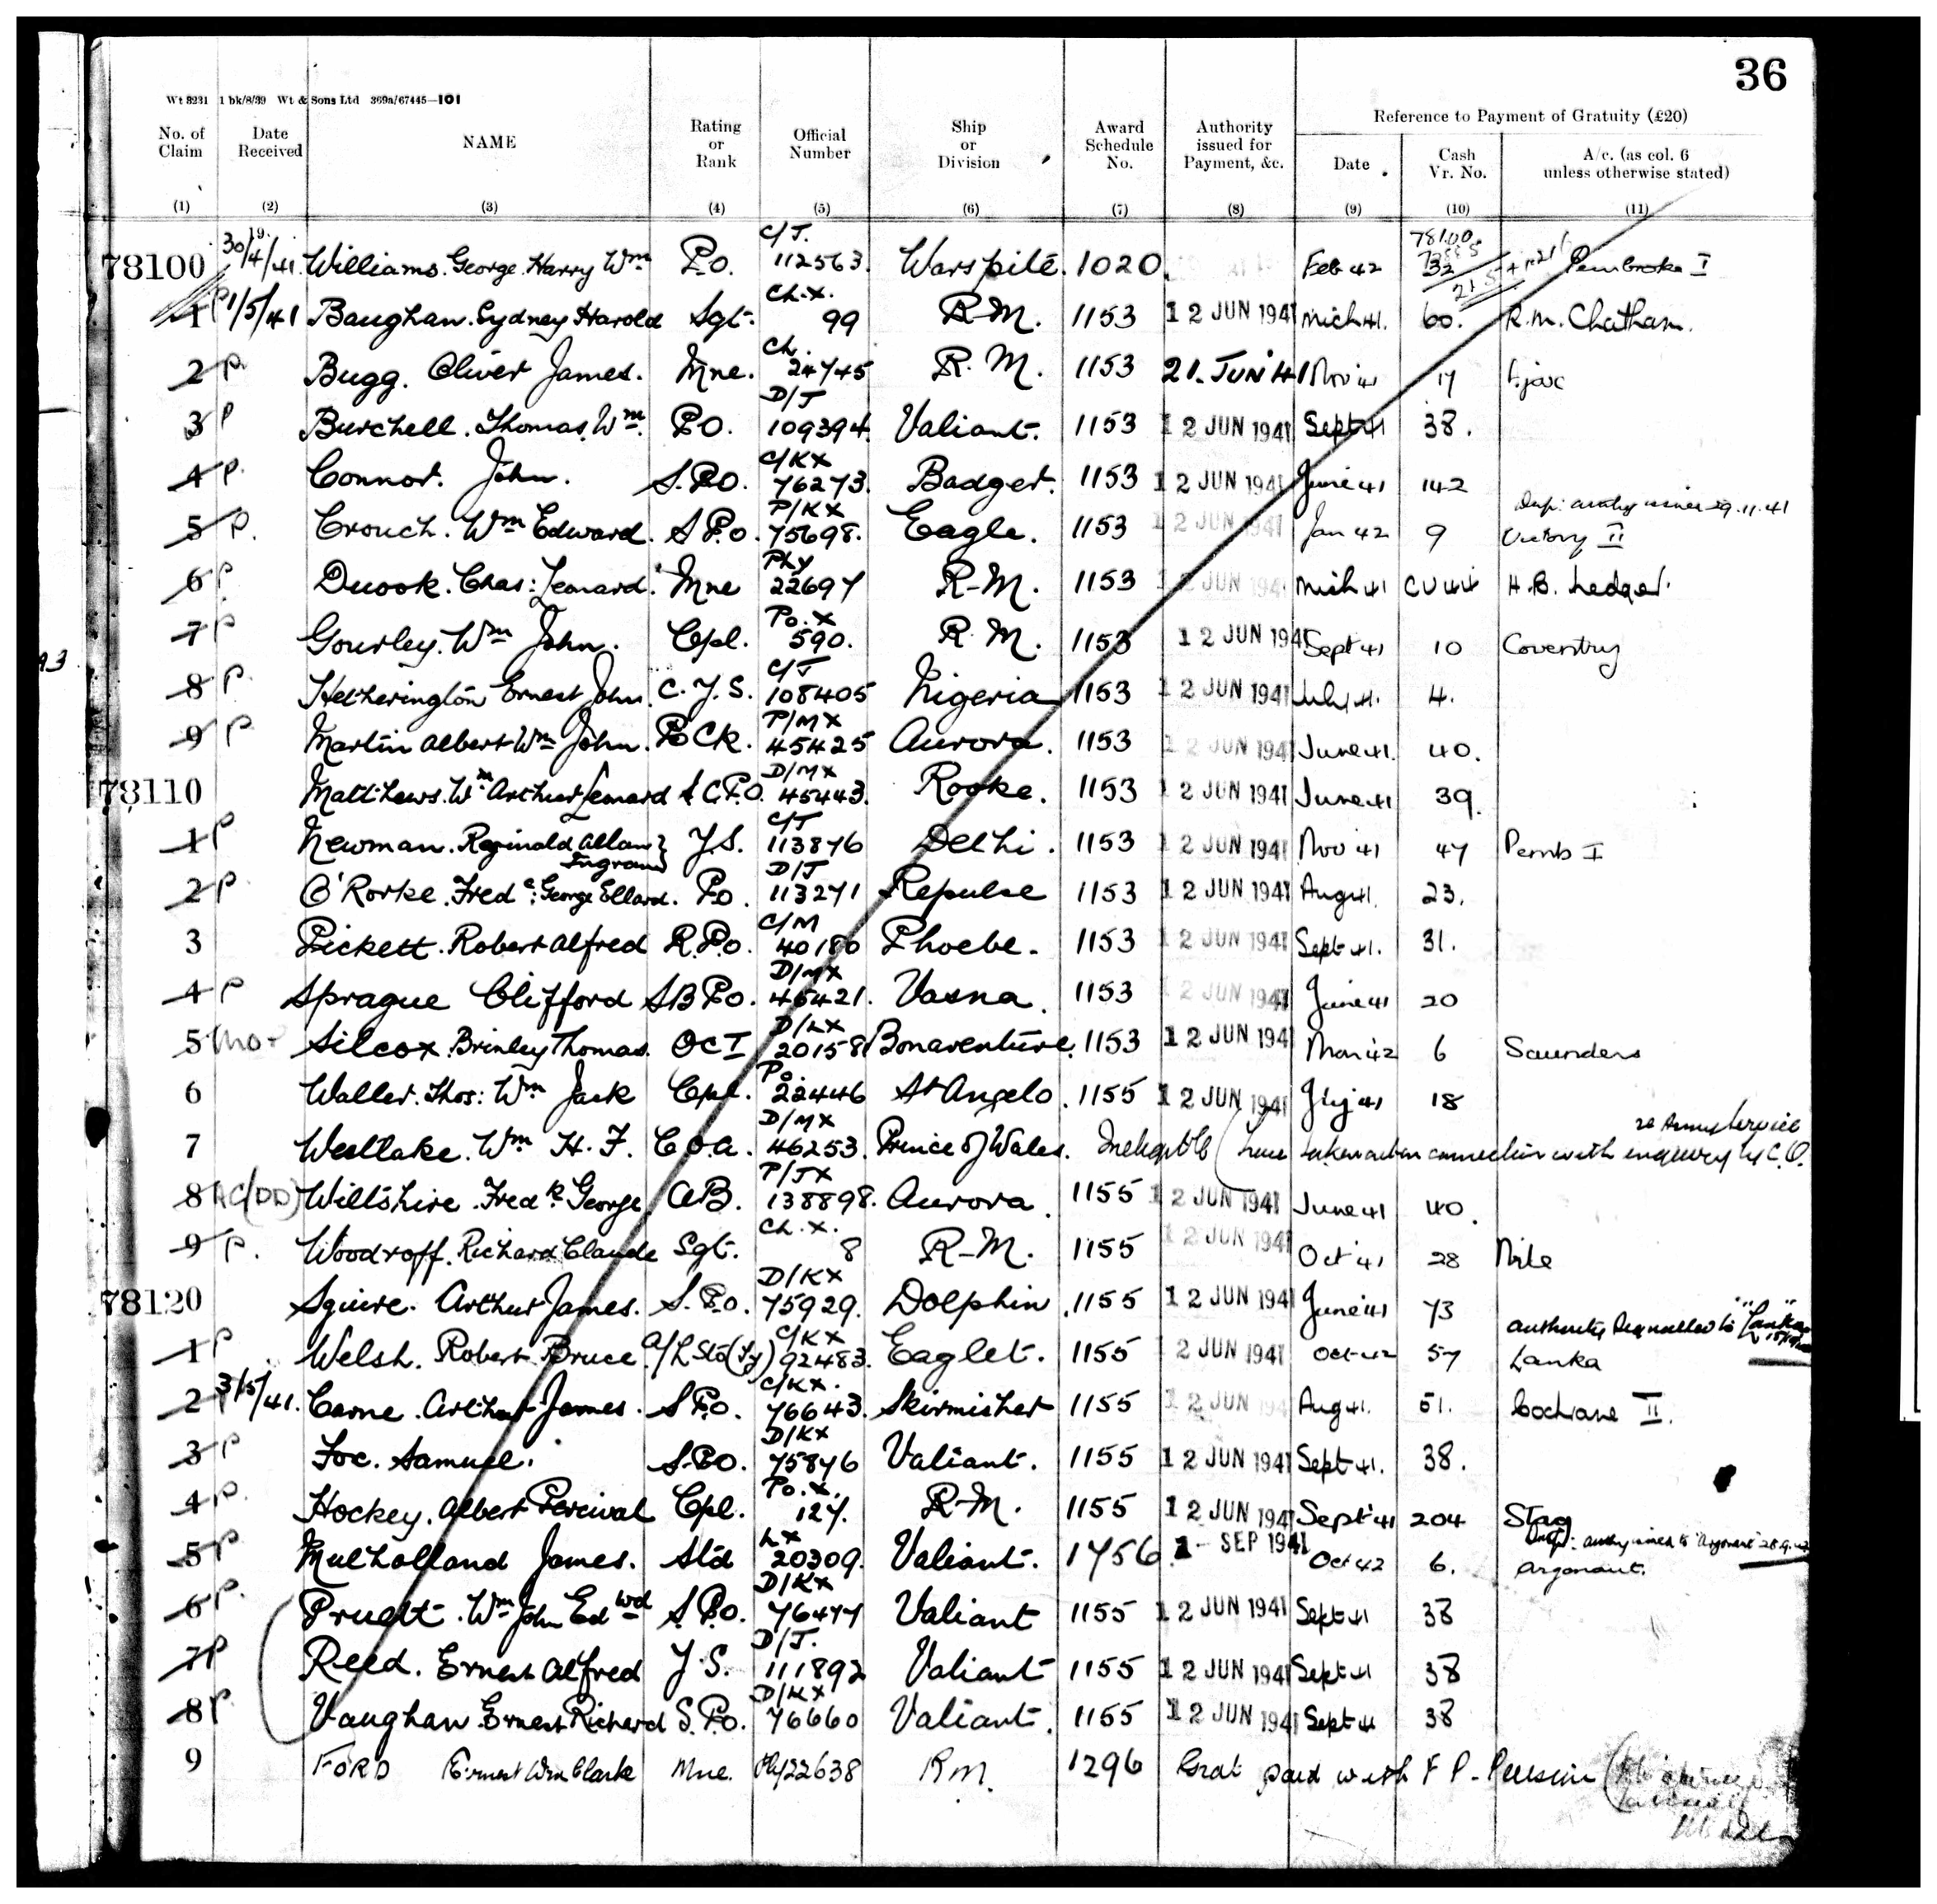 36
Wt 3231 1 bk/8/39 Wt & Sons Ltd 369a/67445—101
Reference to Payment of Gratuity (£20)
No. of Claim Date Received NAME Rating or Rank Official Number Ship or Division Award Schedule No. Authority issued for Payment, &c. Date Cash Vr. No. A/c. (as col. 6 unless otherwise stated)
(1) (2) (3) (4) (5) (6) (7) (8) (9) (10) (11)
78100 30/4/41 Williams. George. Harry Wm P.O. C/J. 112563. Warspite. 1020. Feb 42 32 Pembroke I
1 P 1/5/41 Baughan. Sydney Harold Sgt. Ch.X. 99 R.M. 1153 12 JUN 1941 Mich 41. 60. R.M. Chatham.
2 P. Bugg. Oliver James. Mne. Ch. 24745 R.M. 1153 21. JUN 41 Nov 41 17 Ajax
3 P Burchell. Thomas. Wm. P.O. D/J 109394. Valiant. 1153 12 JUN 1941 Sept 41 38.
4 P. Connor. John. S.P.O. C/KX 76273. Badger. 1153 12 JUN 1941 June 41 142
5 P. Crouch. Wm Edward. S.P.O. P/KX 75698. Eagle. 1153 12 JUN 1941 Jan 42 9 Dup: authy issued 29.11.41 Victory II
6 P. Duook. Chas: Leonard. Mne Ply 22697 R-M. 1153 12 JUN 1941 Mich 41 CV44 H.B. Ledger.
7 P Gourley. Wm John. Cpl. Po. X 590. R.M. 1153 12 JUN 1941 Sept 41 10 Coventry
8 P. Hetherington Ernest John. C.Y.S. C/J 108405 Nigeria 1153 12 JUN 1941 July 41. 4.
9 P Martin Albert Wm John. P.O Ck. P/MX 45425 Aurora. 1153 12 JUN 1941 June 41. 40.
78110 Matthews. Wm Arthur Leonard S.C.P.O. D/MX 45443. Rooke. 1153 12 JUN 1941 June 41 39.
1 P Newman. Reginald Allan Ingram Y.S. C/J 113876 Delhi. 1153 12 JUN 1941 Nov 41 47 Pemb I
2 P O'Rorke. Fredc: George Ellard. P.O. D/J 113271 Repulse 1153 12 JUN 1941 Aug 41. 23.
3 Pickett. Robert Alfred R.P.O. C/M 40180 Phoebe. 1153 12 JUN 1941 Sept 41. 31.
4 P Sprague Clifford SB P.O. D/MX 45421. Vasna. 1153 12 JUN 1941 June 41 20
5 Silcox. Brinley Thomas. OC I D/LX 20158 Bonaventure. 1153 12 JUN 1941 Mar 42 6 Saunders
6 Waller. Thos: Wm Jack Cpl. Po. 22446 St Angelo. 1155 12 JUN 1941 July 41 18
7 Westlake. Wm H. F. C.O.A. D/MX 46253. Prince of Wales. Ineligible (have taken action connection with enquiry by C.O. re Army Service
8 Wiltshire. Fredk. George AB. P/JX 138898. Aurora. 1155 12 JUN 1941 June 41 40.
9 P. Woodroff. Richard Claude Sgt. Ch. X. 8 R-M. 1155 12 JUN 1941 Oct 41 28 Nile
78120 Squire. Arthur James. S.P.O. D/KX 75929. Dolphin. 1155 12 JUN 1941 June 41 73
1 P Welsh. Robert Bruce. A/L Sto (Ty) C/KX 92483. Eaglet. 1155 12 JUN 1941 Oct 42 57 Authority signalled to "Lanka" Lanka
2 3/5/41. Carne. Arthur James. S.P.O. C/KX. 76643. Skirmisher 1155 12 JUN 1941 Aug 41. 51. Cochrane II.
3 P Foc. Samuel. S.P.O. D/KX 75876 Valiant. 1155 12 JUN 1941 Sept 41. 38.
4 P. Hockey. Albert Percival Cpl. Po. X. 127. R-M. 1155 12 JUN 1941 Sept 41 204 Stag
5 P Mulholland James. Std LX 20309. Valiant. 1756. 1 - SEP 1941 Oct 42 6. Dup: authy issued to "Argonaut" 28.9.42 Argonaut.
6 P. Pruett. Wm John Edwd S.P.O. D/KX 76477 Valiant 1155 12 JUN 1941 Sept 41 38
7 P Reed. Ernest Alfred Y.S. D/J. 111892 Valiant 1155 12 JUN 1941 Sept 41 38
8 P. Vaughan. Ernest Richard S.P.O. D/KX 76660 Valiant. 1155 12 JUN 1941 Sept 41 38
9 FORD Ernest Wm Clarke Mne. Ply 22638 R.M. 1296 Grat paid with F P. Pension